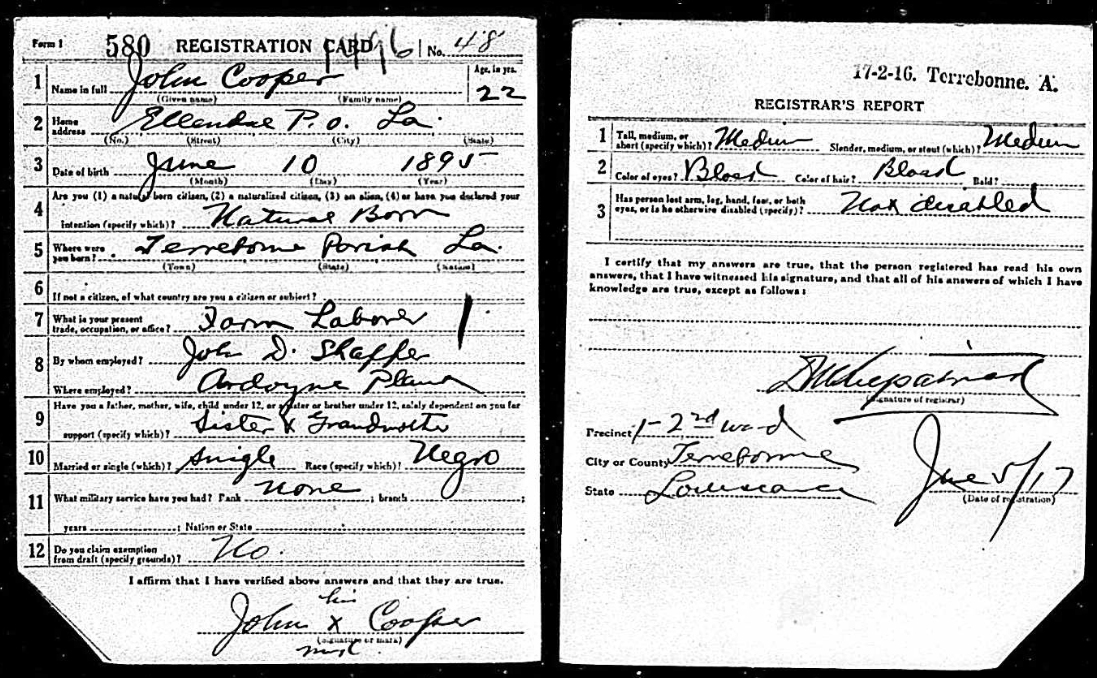 Form 1 580 REGISTRATION CARD 1496 No. 48
1 Name in full John Cooper Age, in yrs. 22
(Given name) (Family name)
2 Home address Ellendale P.O. La.
(No.) (Street) (City) (State)
3 Date of birth June 10 1895
(Month) (Day) (Year)
4 Are you (1) a natural born citizen, (2) a naturalized citizen, (3) an alien, (4) or have you declared your
intention (specify which)? Natural Born
5 Where were you born? Terrebonne Parish La.
(Town) (State) (Nation)
6 If not a citizen, of what country are you a citizen or subject?
7 What is your present trade, occupation, or office? Farm Laborer
8 By whom employed? John D. Shaffer
Where employed? Ardoyne Plant
9 Have you a father, mother, wife, child under 12, or a sister or brother under 12, solely dependent on you for
support (specify which)? Sister & Grandmother
10 Married or single (which)? Single Race (specify which)? Negro
11 What military service have you had? Rank none ; branch ;
years ; Nation or State
12 Do you claim exemption from draft (specify grounds)? No.
I affirm that I have verified above answers and that they are true.
his
John X Cooper
(Signature or mark)
mark
17-2-16. Terrebonne. A.
REGISTRAR'S REPORT
1 Tall, medium, or short (specify which)? Medium Slender, medium, or stout (which)? Medium
2 Color of eyes? Color of hair? Bald?
3 Has person lost arm, leg, hand, foot, or both eyes, or is he otherwise disabled (specify)? Not disabled
I certify that my answers are true, that the person registered has read his own
answers, that I have witnessed his signature, and that all of his answers of which I have
knowledge are true, except as follows:
(Signature of registrar)
Precinct 1-2nd ward
City or County Terrebonne
State Louisiana June 5/17
(Date of registration)